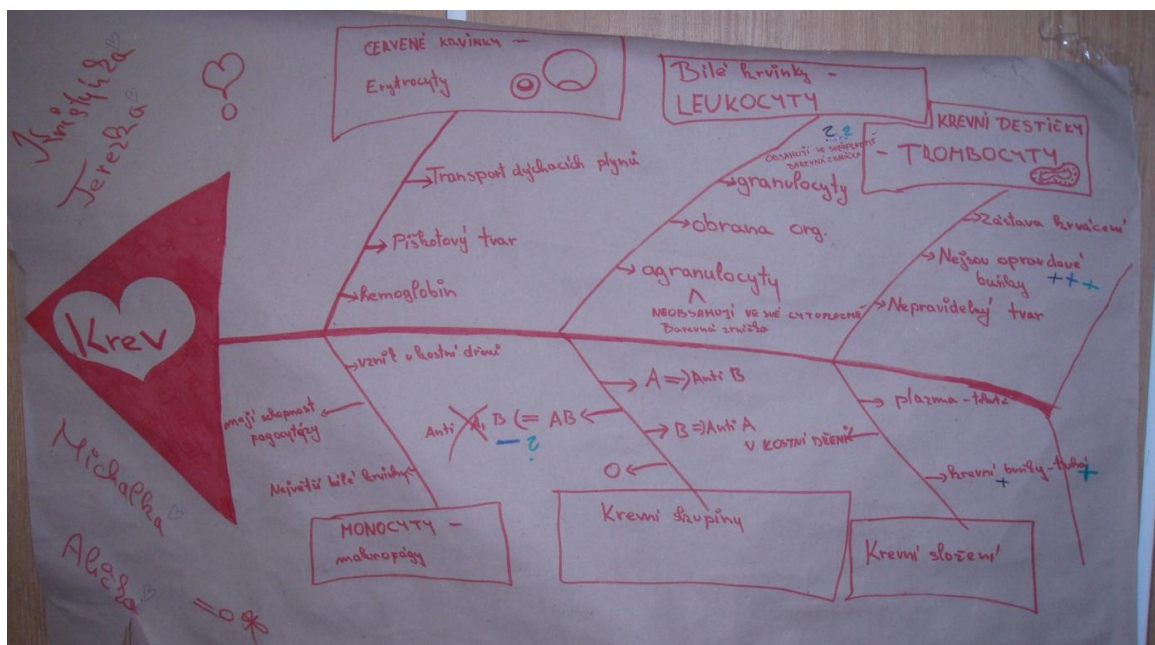 Kristýnka
Terezka
Krev
Michalka
Alička
=o*
ČERVENÉ KRVINKY –
Erytrocyty
Transport dýchacích plynů
Piškotový tvar
hemoglobin
Bílé krvinky –
LEUKOCYTY
? ?
OBSAHUJÍ VE
BAREVNÁ ZRNÍČKA
granulocyty
obrana org.
agranulocyty
NEOBSAHUJÍ VE SVÉ CYTOPLAZMĚ
Barevná zrníčka
KREVNÍ DESTIČKY
– TROMBOCYTY
Zástava krvácení
Nejsou opravdové
buňky +++
Nepravidelný tvar
vznik v kostní dřeni
mají schopnost
fagocytózy
Největší bílé krvinky
MONOCYTY –
makrofágy
A => Anti B
Anti A, B (= AB
?
B => Anti A
O
Krevní skupiny
plazma – tekutá
V KOSTNÍ DŘENI
krevní buňky – tuhá
+ +
Krevní složení